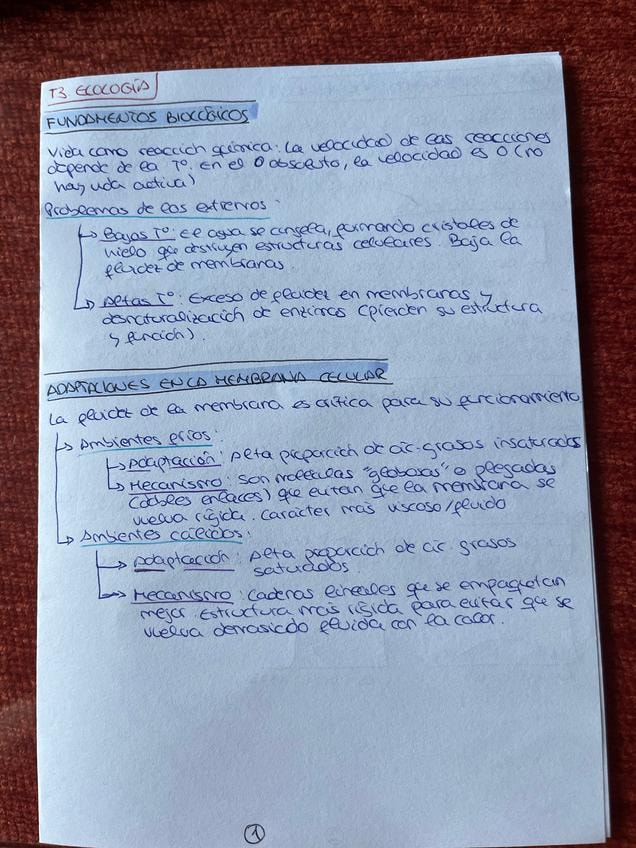 T3 ECOLOGÍA
FUNDAMENTOS BIOLÓGICOS
Vida como reacción química: La velocidad de las reacciones
depende de la Tº. en el 0 absoluto, la velocidad es 0 (no
hay vida activa)
Problemas de los extremos:
Bajas Tº: el agua se congela, formando cristales de
hielo que destruyen estructuras celulares. Baja la
fluidez de membranas.
Altas Tº: Exceso de fluidez en membranas y
desnaturalización de enzimas (pierden su estructura
y función).
ADAPTACIONES EN LA MEMBRANA CELULAR
La fluidez de la membrana es crítica para su funcionamiento
Ambientes fríos:
Adaptación: Alta proporción de ác. grasos insaturados
Mecanismo: son moléculas "globosas" o plegadas
(dobles enlaces) que evitan que la membrana se
vuelva rígida. carácter más viscoso/fluido
Ambientes cálidos:
Adaptación: Alta proporción de ác. grasos
saturados.
Mecanismo: cadenas lineales que se empaquetan
mejor. Estructura más rígida para evitar que se
vuelva demasiado fluida con la calor.
1